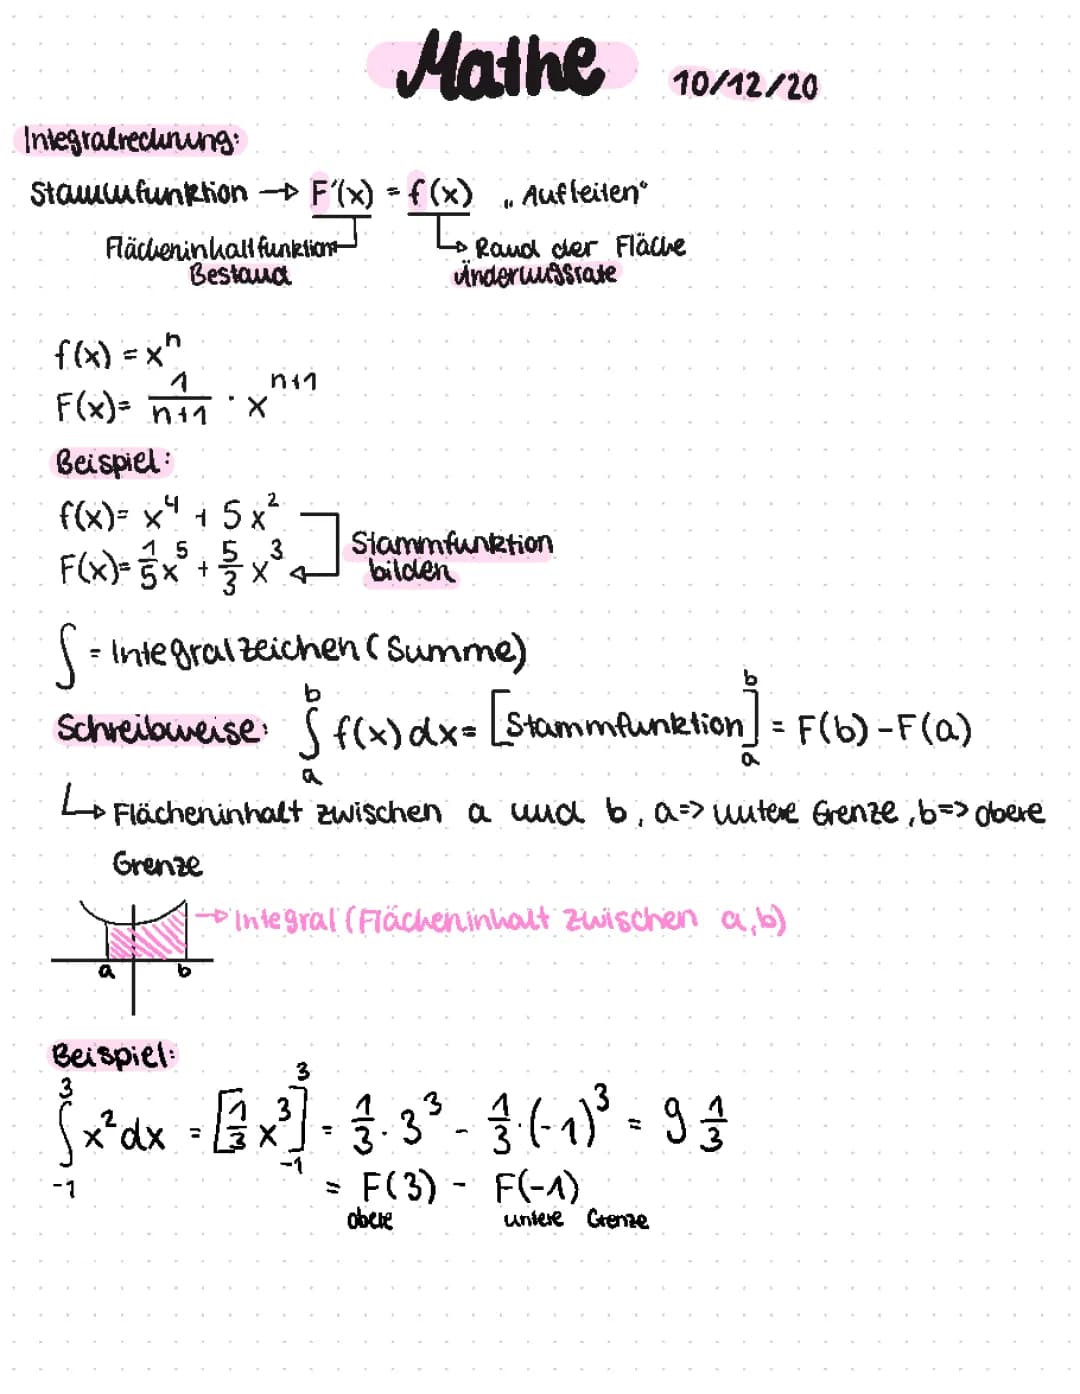 Mathe 10/12/20
Integralrechnung:
Stammfunktion → F'(x) = f(x) „Aufleiten"
Flächeninhaltfunktion → Rand der Fläche
Bestand Änderungsrate
f(x) = xⁿ
F(x) = 1/(n+1) · xⁿ⁺¹
Beispiel:
f(x) = x⁴ + 5x²
F(x) = 1/5 x⁵ + 5/3 x³
Stammfunktion
bilden
∫ = Integralzeichen (Summe)
Schreibweise: ∫ₐᵇ f(x) dx = [Stammfunktion]ₐᵇ = F(b) - F(a)
↳ Flächeninhalt zwischen a und b, a => untere Grenze, b => obere
Grenze
→ Integral (Flächeninhalt zwischen a,b)
a b
Beispiel:
∫₋₁³ x² dx = [1/3 x³]₋₁³ = 1/3 · 3³ - 1/3 · (-1)³ = 9 1/3
= F(3) - F(-1)
obere untere Grenze